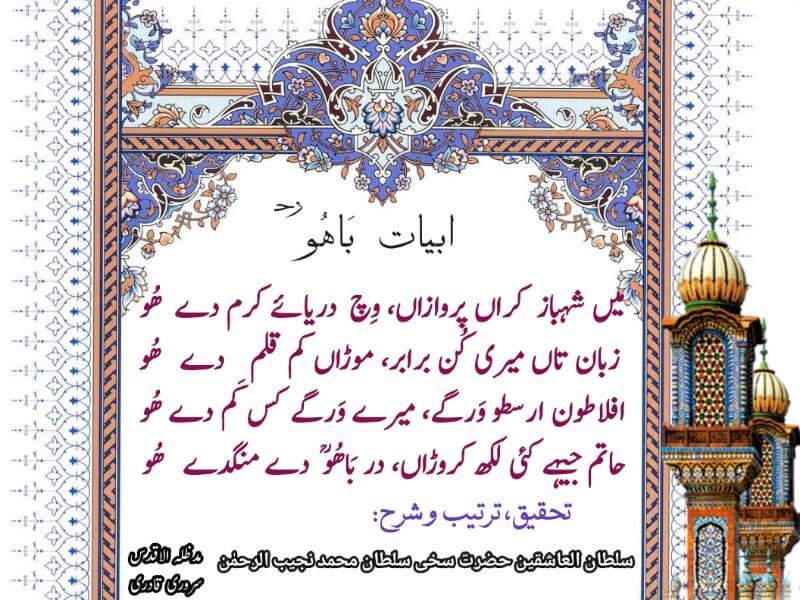 ابیات بَاھُوؒ
میں شہباز کراں پروازاں، وِچ دریائے کرم دے ھُو
زبان تاں میری کُن برابر، موڑاں کم قلم دے ھُو
افلاطون ارسطو وَرگے، میرے وَرگے کس کَم دے ھُو
حاتم جیہے کئی لکھ کروڑاں، در بَاھُوؒ دے منگدے ھُو
تحقیق، ترتیب و شرح:
سلطان العاشقین حضرت سخی سلطان محمد نجیب الرحمٰن مدظلہ الاقدس
سروری قادری